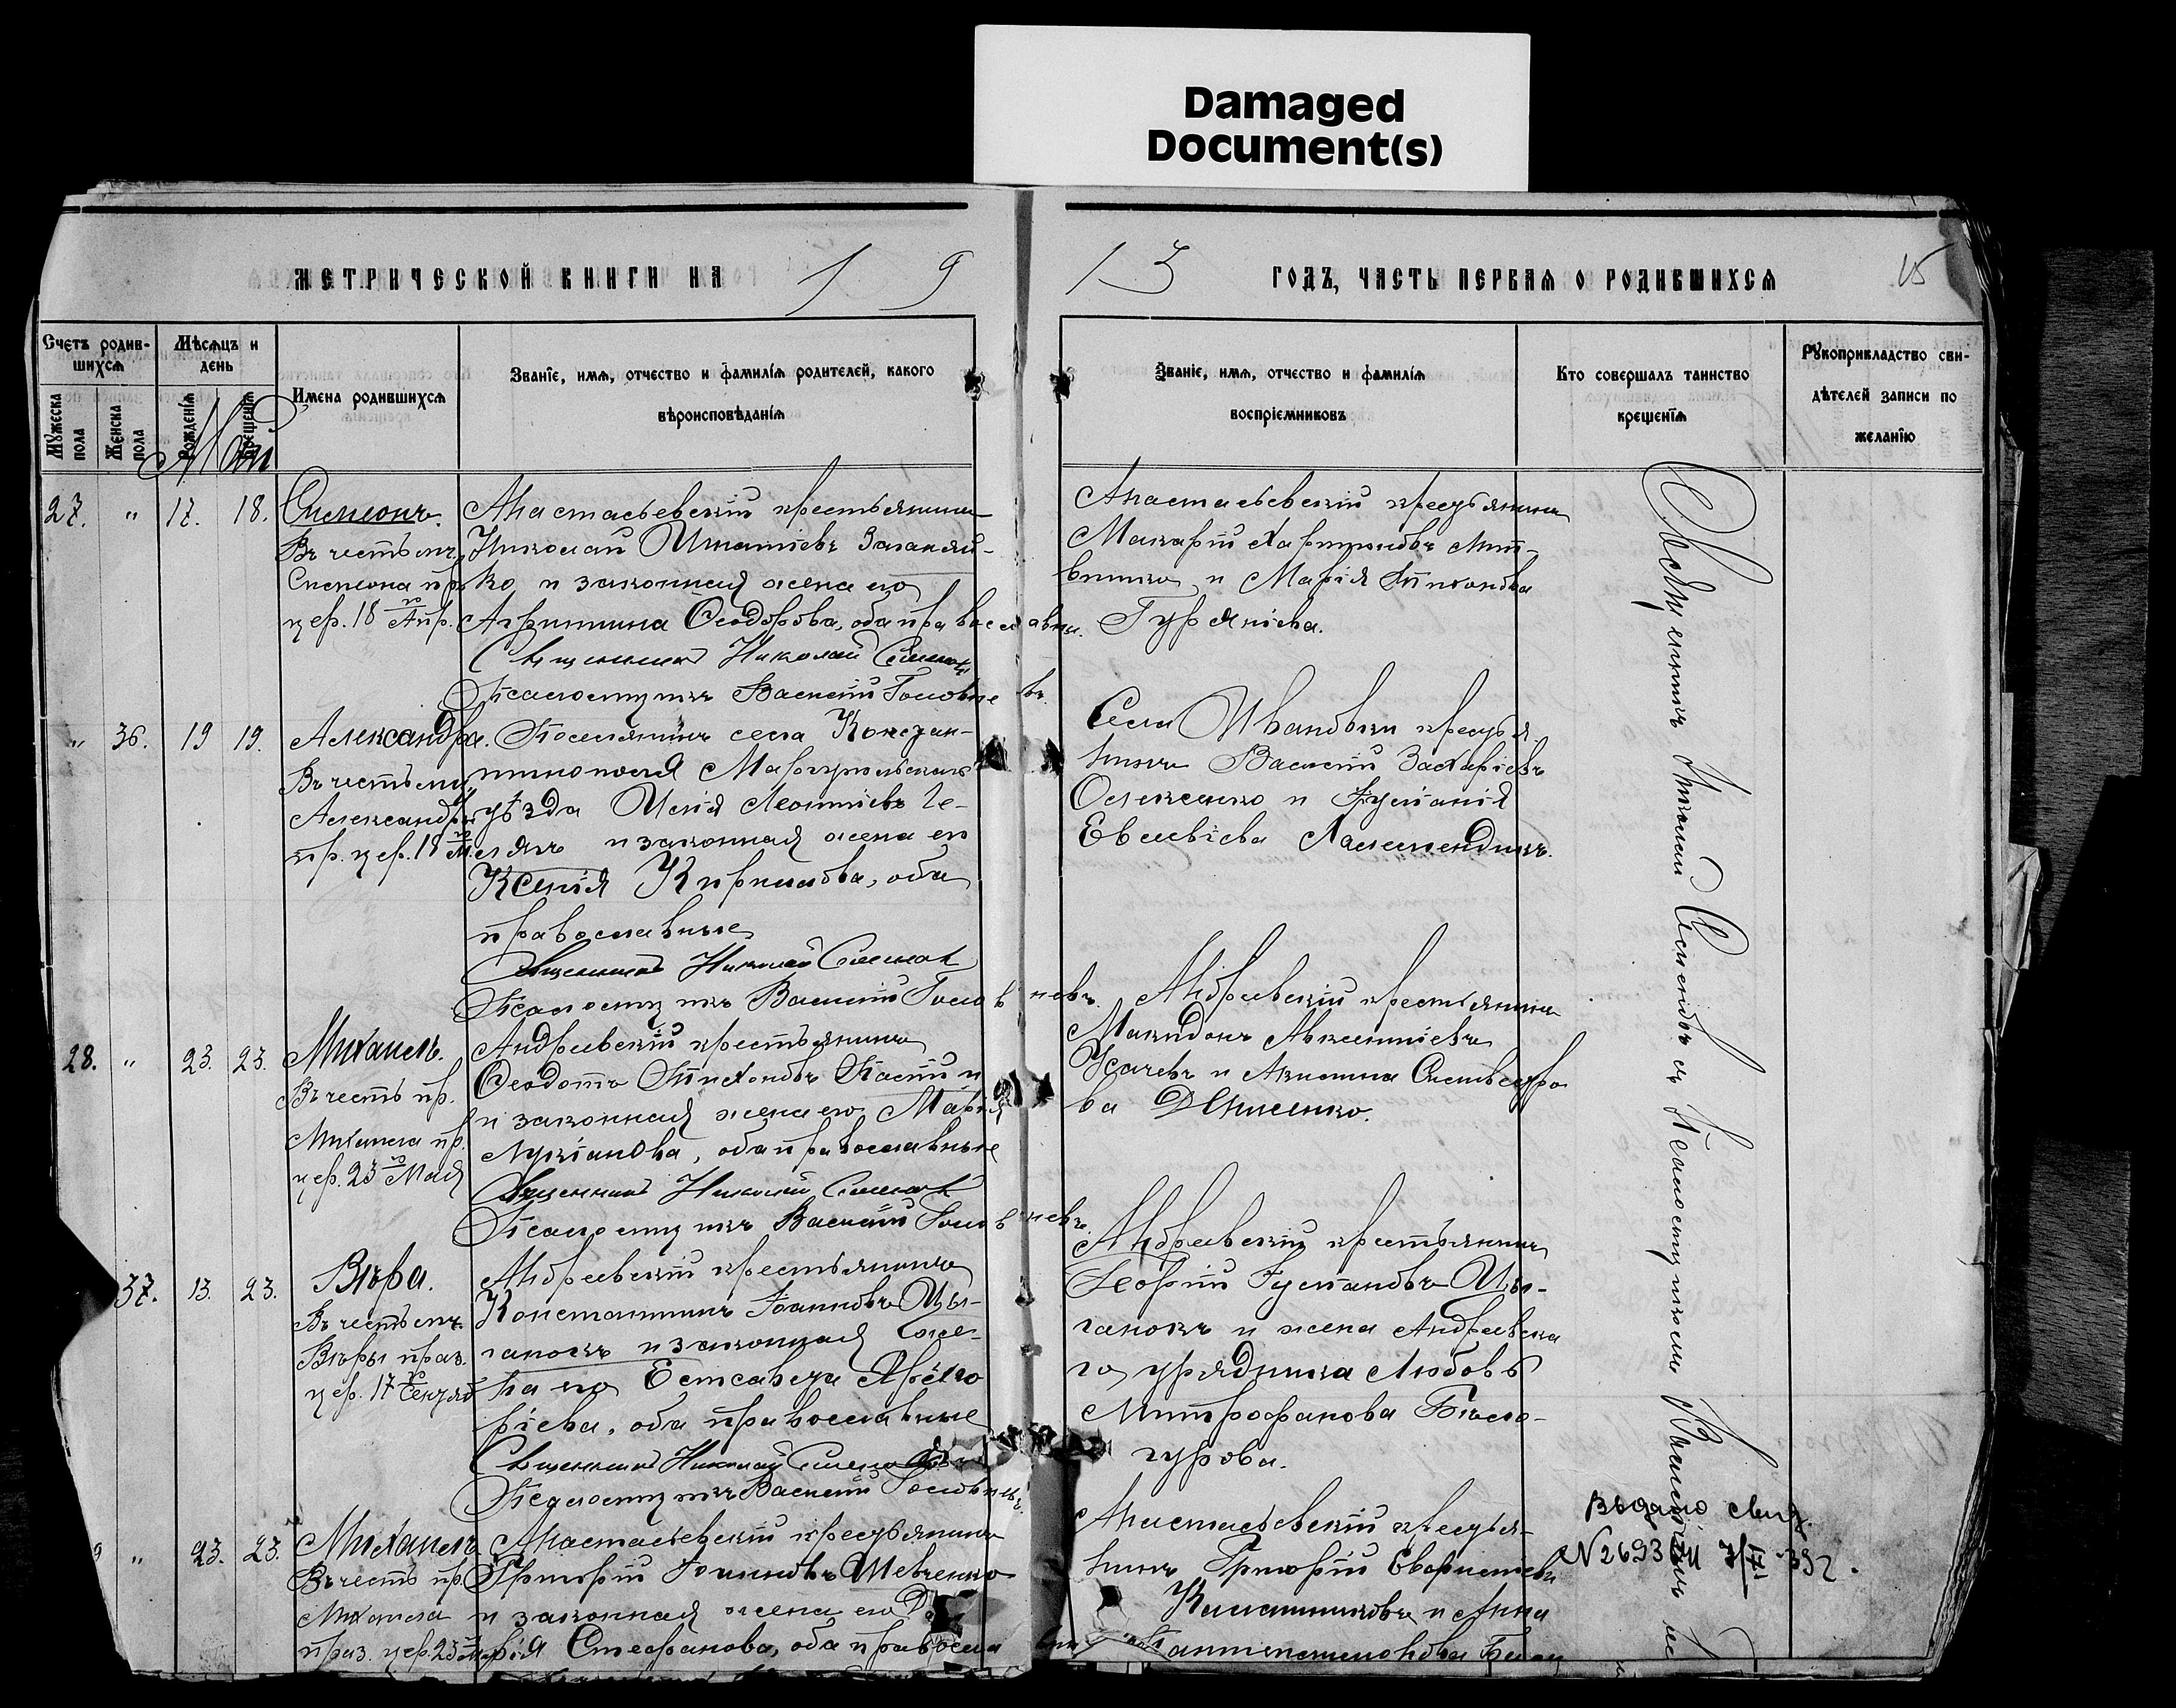 Damaged
Document(s)
МЕТРИЧЕСКОЙ КНИГИ НА 19
13 ГОДЪ, ЧАСТЬ ПЕРВАЯ О РОДИВШИХСЯ
15
Счетъ родив-
шихся
Мужеска пола
Женска пола
Мѣсяцъ и
день
Рожденія
Крещенія
Май
Имена родившихся
Званіе, имя, отчество и фамилія родителей, какого
вѣроисповѣданія
Званіе, имя, отчество и фамилія
воспріемниковъ
Кто совершалъ таинство
крещенія
Рукоприкладство сви-
дѣтелей записи по
желанію
27. " 17. 18.
Симеонъ.
Въ честь
Симеона пр.
цер. 18го Апр.
Анастасьевскій крестьянинъ
Николай Игнатіевъ
ко и законная жена его
Агриппина Ѳеодорова, оба православн.
Священникъ Николай
Псаломщикъ Василій
Анастасьевскій крестьянинъ
Макарій Харитоновъ Лит-
винко и Марія Тихонова
" 36. 19 19.
Александра.
Въ честь
Александры
пр. цер. 18го М.
Поселянинъ села Констан-
тинополя Маріупольскаго
уѣзда Илія Леонтіевъ Че-
и законная жена его
Ксенія Кириллова, оба
православные
Священникъ Николай
Псаломщикъ Василій
Села Ивановки крестья-
нинъ Василій Захаріевъ
Олексенко и Іуліанія
Евсевіева
28. " 23. 23.
Михаилъ.
Въ честь пр.
Михаила пр.
цер. 23го Мая
Андреевскій крестьянинъ
Ѳеодотъ Тихоновъ
и законная жена его Марія
Лукіанова, оба православные
Священникъ Николай
Псаломщикъ Василій
Андреевскій крестьянинъ
Македонъ Авксентіевъ
Усачевъ и Акилина Сильвестро
ва Денисенко.
37. 13. 23.
Вѣра.
Въ честь мч.
Вѣры праз.
цер. 17го Сентяб
Андреевскій крестьянинъ
Константинъ Іоанновъ Цы-
ганокъ и законная же-
на его Елисавета Григо
ріева, оба православные
Священникъ Николай
Псаломщикъ Василій
Андреевскій крестьянинъ
Георгій Іуліановъ Цы-
ганокъ и жена Андреевска
го урядника Любовь
Митрофанова Бѣло-
гурова.
9 " 23. 23.
Михаилъ
Въ честь пр.
Михаила
праз. цер. 23го Мая
Анастасьевскій крестьянинъ
Григорій Іоанновъ Шевченко
и законная жена его
рія Стефанова, оба правосла
Анастасьевскій крестья-
нинъ Григорій Евариѳтіевъ
Калашниковъ и Анна
Пантелеимонова
Священникъ Николай Семеновъ съ Псаломщикомъ Василіемъ
Выдано свид.
N 2693